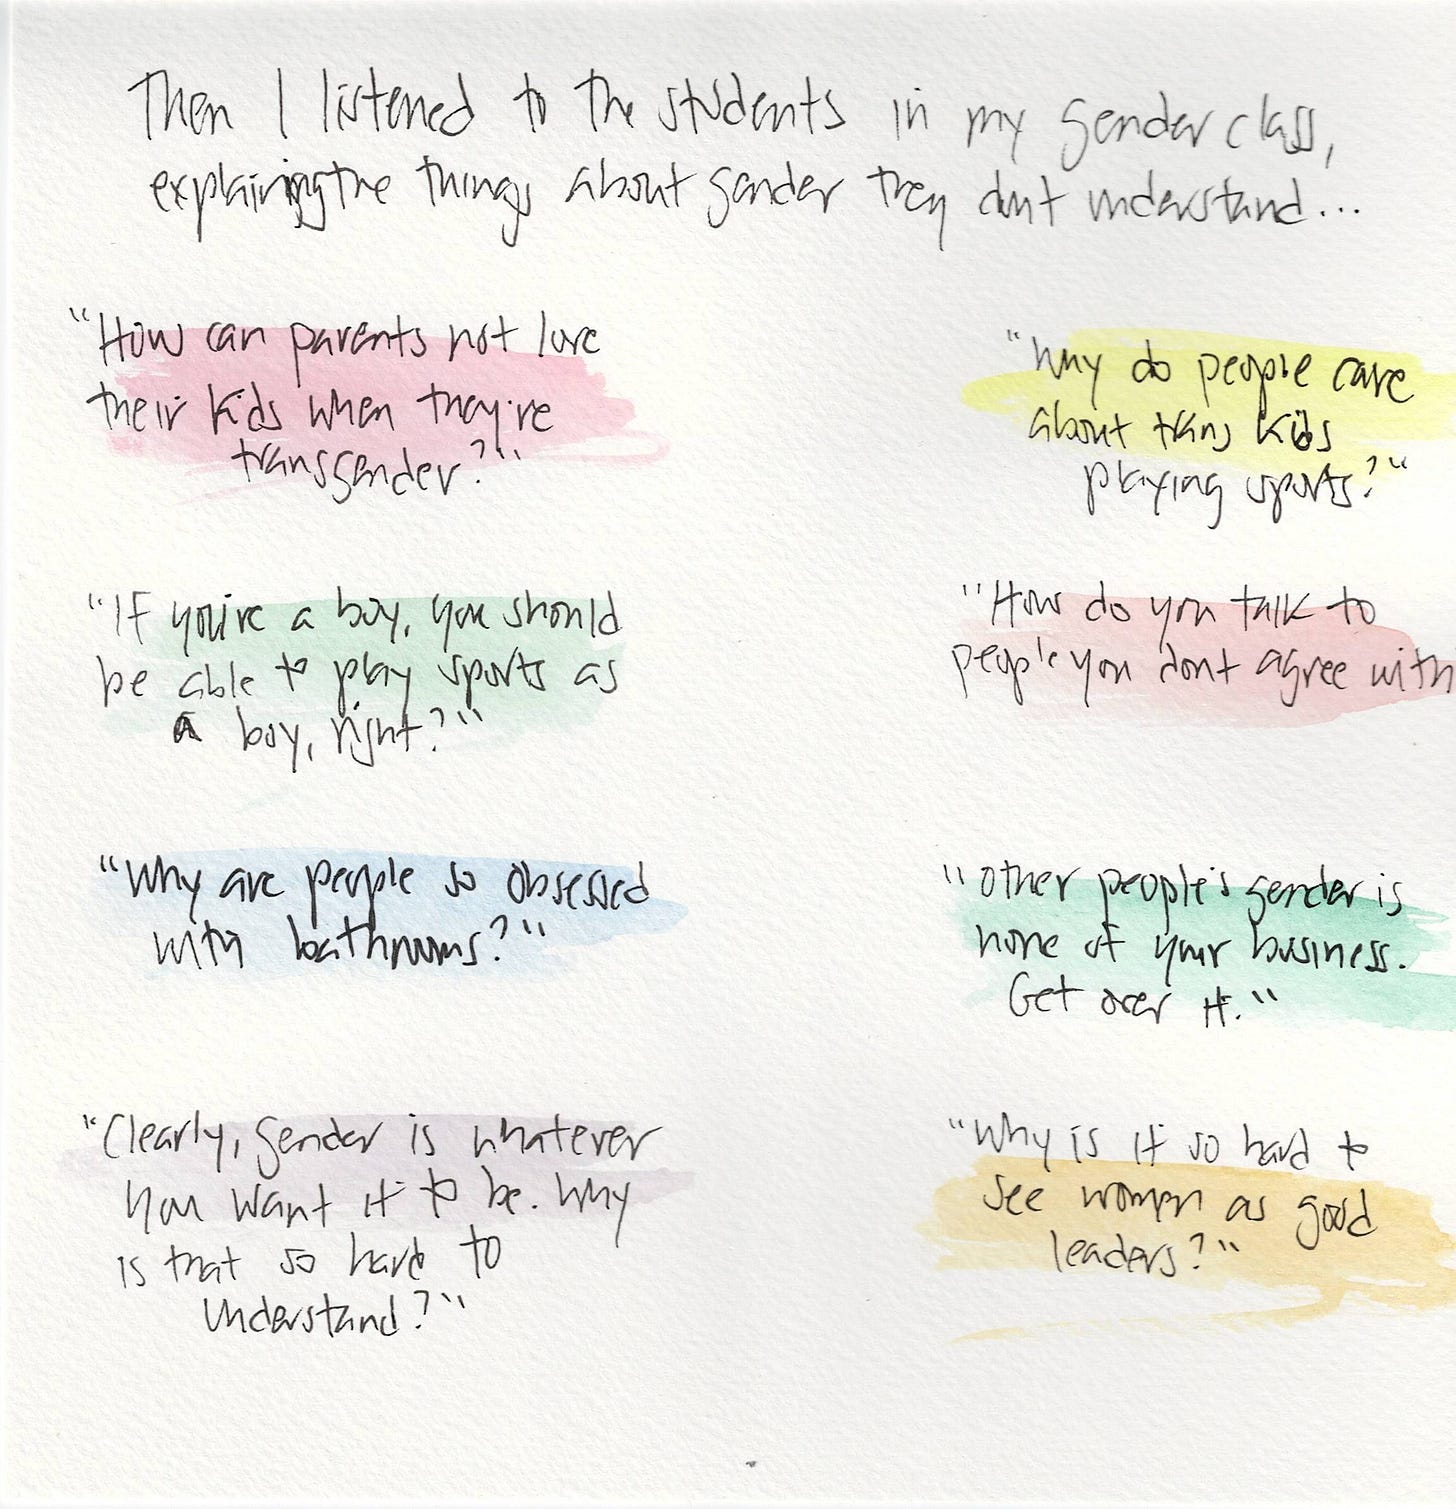 Then I listened to the students in my gender class,
explaining the things about gender they don't understand...
"How can parents not love
their kids when they're
transgender?"
"Why do people care
about trans kids
playing sports?"
"If you're a boy, you should
be able to play sports as
a boy, right?"
"How do you talk to
people you don't agree with
"Why are people so obsessed
with bathrooms?"
"Other people's gender is
none of your business.
Get over it."
"Clearly, gender is whatever
you want it to be. Why
is that so hard to
understand?"
"Why is it so hard to
see women as good
leaders?"